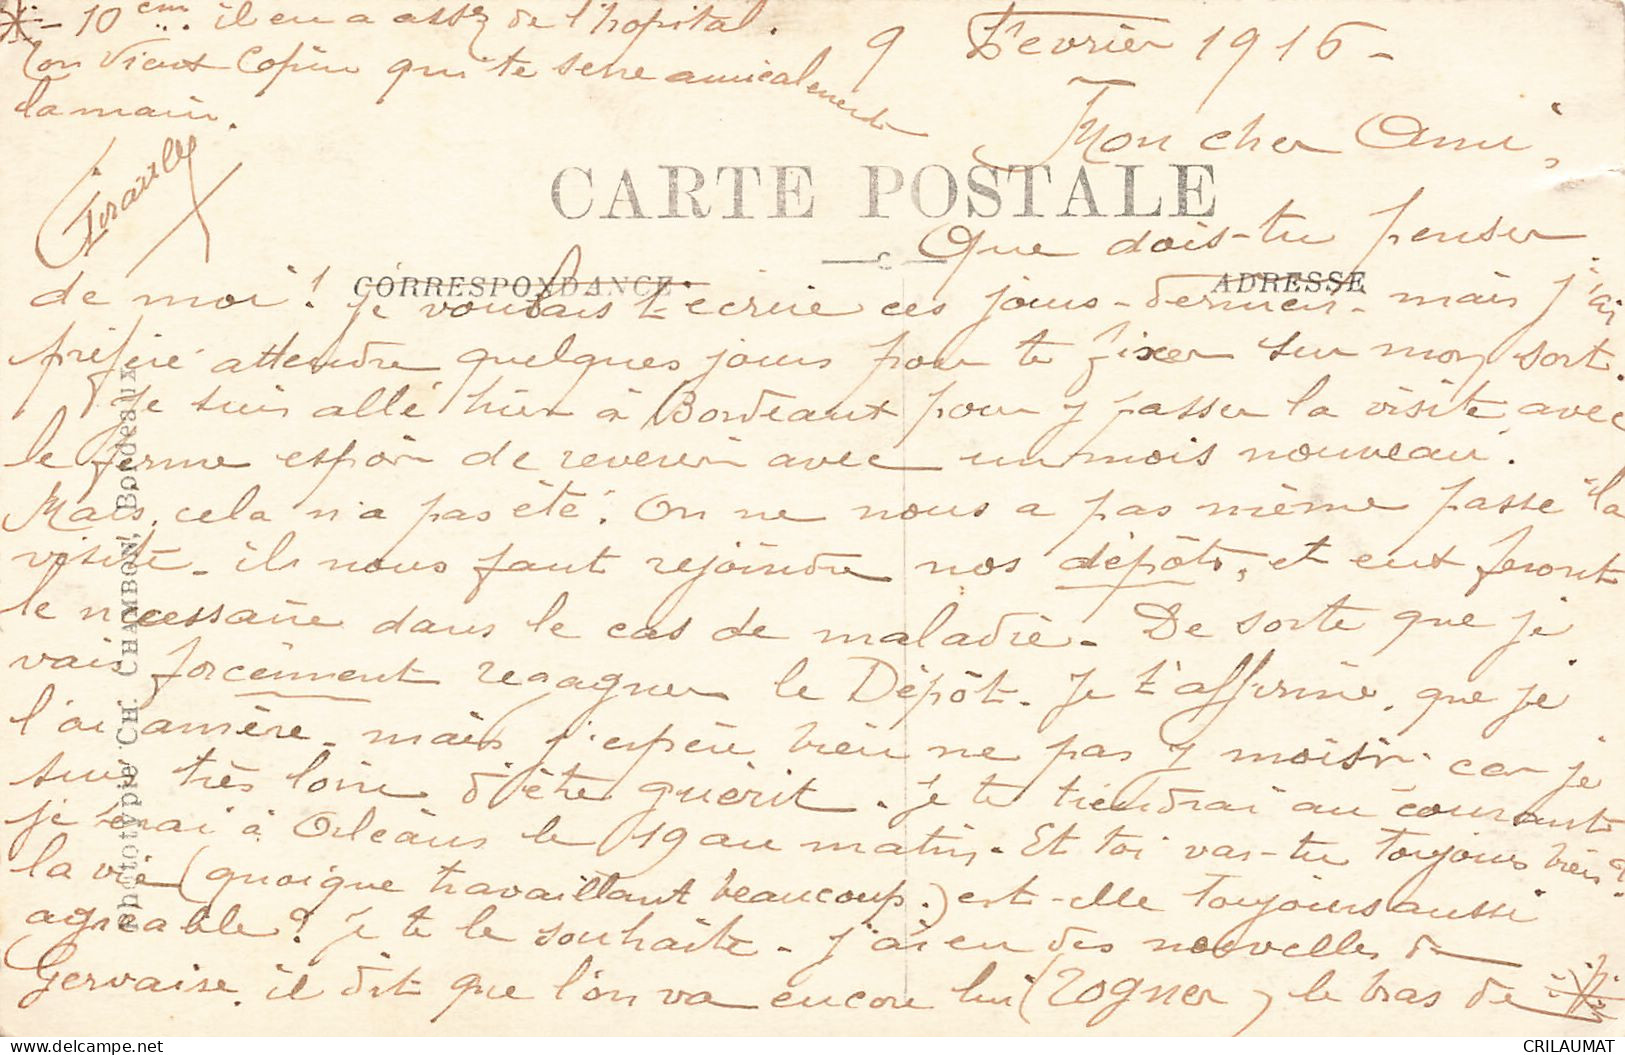 9 Février 1916-
Mon cher Ami,
CARTE POSTALE
Que dois-tu penser
CORRESPONDANCE
ADRESSE
de moi! Je voulais t'ecrire ces jours-derniers- mais j'ai
préféré attendre quelques jours pour te fixer sur mon sort.
Je suis allé hier à Bordeaux pour y passer la visite, avec
le ferme espoir de revenir avec un mois nouveau.
Mais, cela n'a pas été. On ne nous a pas même passé la
visite- ils nous faut rejoindre nos dépôts, et eux feront
le nécessaire dans le cas de maladie- De sorte que je
vais forcément regagner le Dépôt. Je t'affirme, que je
l'ai amère- mais j'espère bien ne pas y moisir. car je
suis très loin d'être guérit. Je te tiendrai au courant
je serai à Orléans le 19 au matin. Et toi vas-tu toujours bien?
la vie (quoique travaillant beaucoup.) est-elle toujours aussi
agréable? Je te le souhaite- J'ai eu des nouvelles de
Gervaise. il dit que l'on va encore lui (rogner, le bras de
*- 10 cm... il en a assez de l'hopital.
Ton Vieux Copin qui te serre amicalement
la main.
Phototypie CH. CHAMBON, Bordeaux
CRILAUMAT